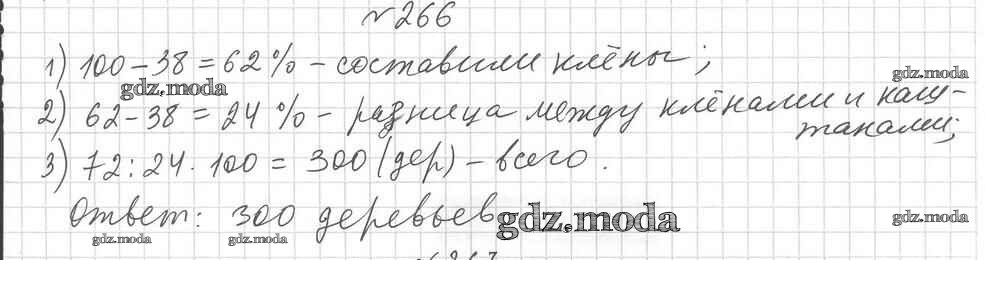 №266
1) 100-38=62% - составили клёны;
gdz.moda
gdz.moda
2) 62-38=24% - разница между клёнами и каш-
танами;
3) 72:24·100=300 (дер) - всего.
Ответ: 300 деревьев
gdz.moda
gdz.moda
gdz.moda
gdz.moda